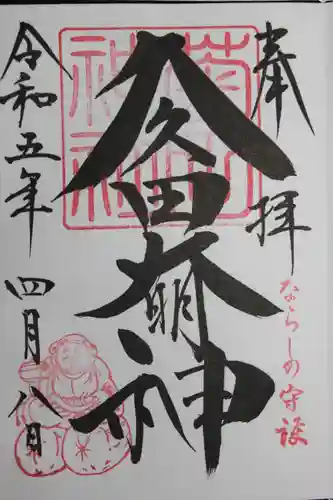 奉拝
ならしの守護
久久田大明神
菊田神社
令和五年
四月八日